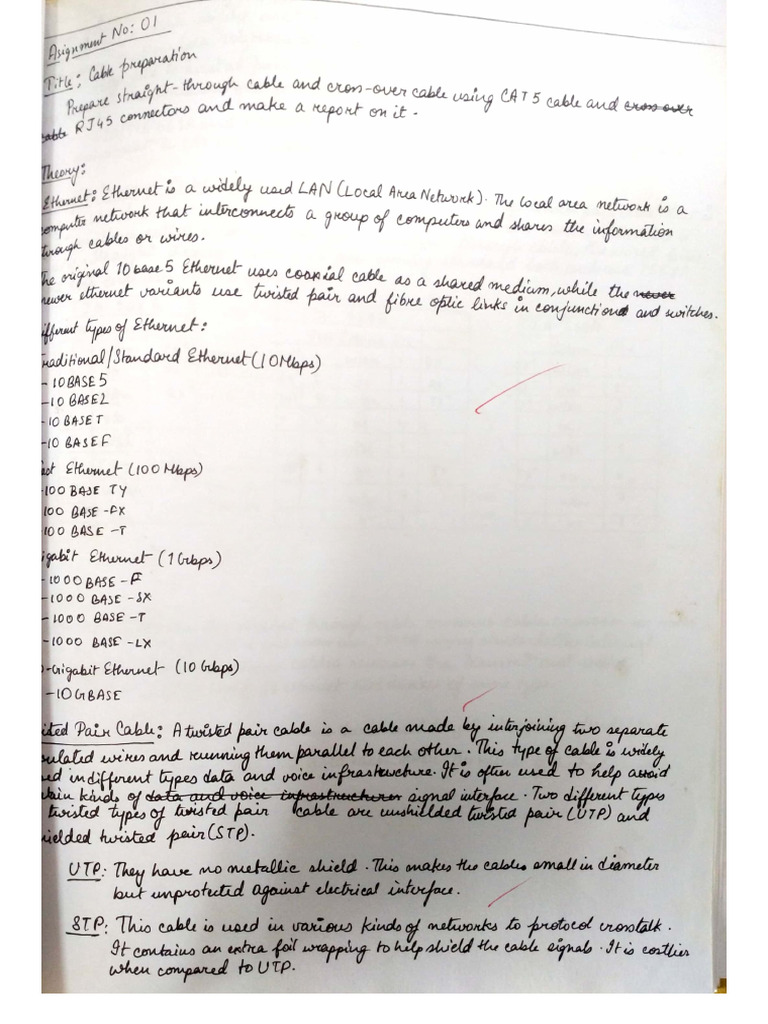 Asignment No: 01
Title: Cable preparation
Prepare straight-through cable and cross-over cable using CAT 5 cable and cross over
cable RJ45 connectors and make a report on it.
Theory:
Ethernet: Ethernet is a widely used LAN (Local Area Network). The local area network is a
omputer network that interconnects a group of computers and shares the information
through cables or wires.
he original 10 base 5 Ethernet uses coaxial cable as a shared medium, while the never
newer ethernet variants use twisted pair and fibre optic links in conjunction and switches.
ifferent types of Ethernet:
raditional/Standard Ethernet (10Mbps)
- 10BASE5
- 10 BASE2
- 10 BASE T
- 10 BASE F
ast Ethernet (100 Mbps)
-100 BASE TY
100 BASE -FX
100 BASE -T
igabit Ethernet (1Gbps)
-1000 BASE -F
-1000 BASE -SX
- 1000 BASE -T
- 1000 BASE -LX
-Gigabit Ethernet (10 Gbps)
-10GBASE
isted Pair Cable: A twisted pair cable is a cable made by interjoining two separate
sulated wires and running them parallel to each other. This type of cable is widely
ed in different types data and voice infrastructure. It is often used to help avoid
tain kinds of data and voice infrastructure signal interface. Two different types
twisted types of twisted pair cable are unshillded twisted pair (UTP) and
hielded twisted pair (STP).
UTP: They have no metallic shield. This makes the cables small in diameter
but unprotected against electrical interface.
STP: This cable is used in various kinds of networks to protocol crosstalk.
It contains an extra foil wrapping to help shield the cable signals. It is costlier
when compared to UTP.